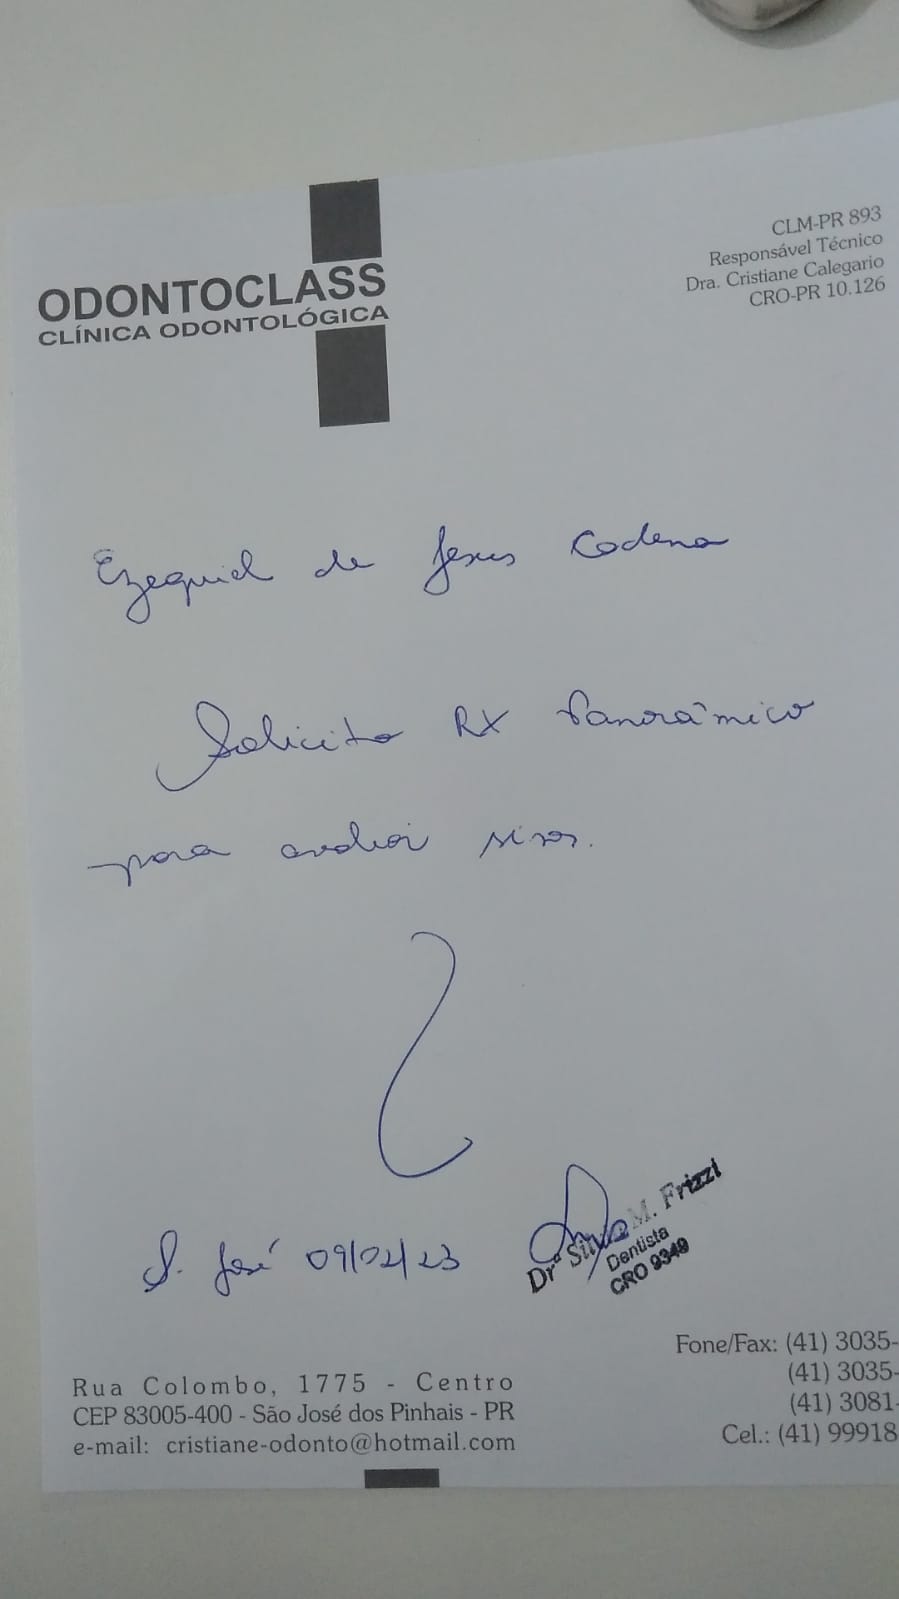 ODONTOCLASS
CLÍNICA ODONTOLÓGICA
CLM-PR 893
Responsável Técnico
Dra. Cristiane Calegario
CRO-PR 10.126
Ezequiel de Jesus Codena
Solicito RX Panorâmico
para avaliar sisos.
S. José 09/02/23
Drª Silvia M. Frizzi
Dentista
CRO 9349
Rua Colombo, 1775 - Centro
CEP 83005-400 - São José dos Pinhais - PR
e-mail: cristiane-odonto@hotmail.com
Fone/Fax: (41) 3035-
(41) 3035-
(41) 3081-
Cel.: (41) 99918